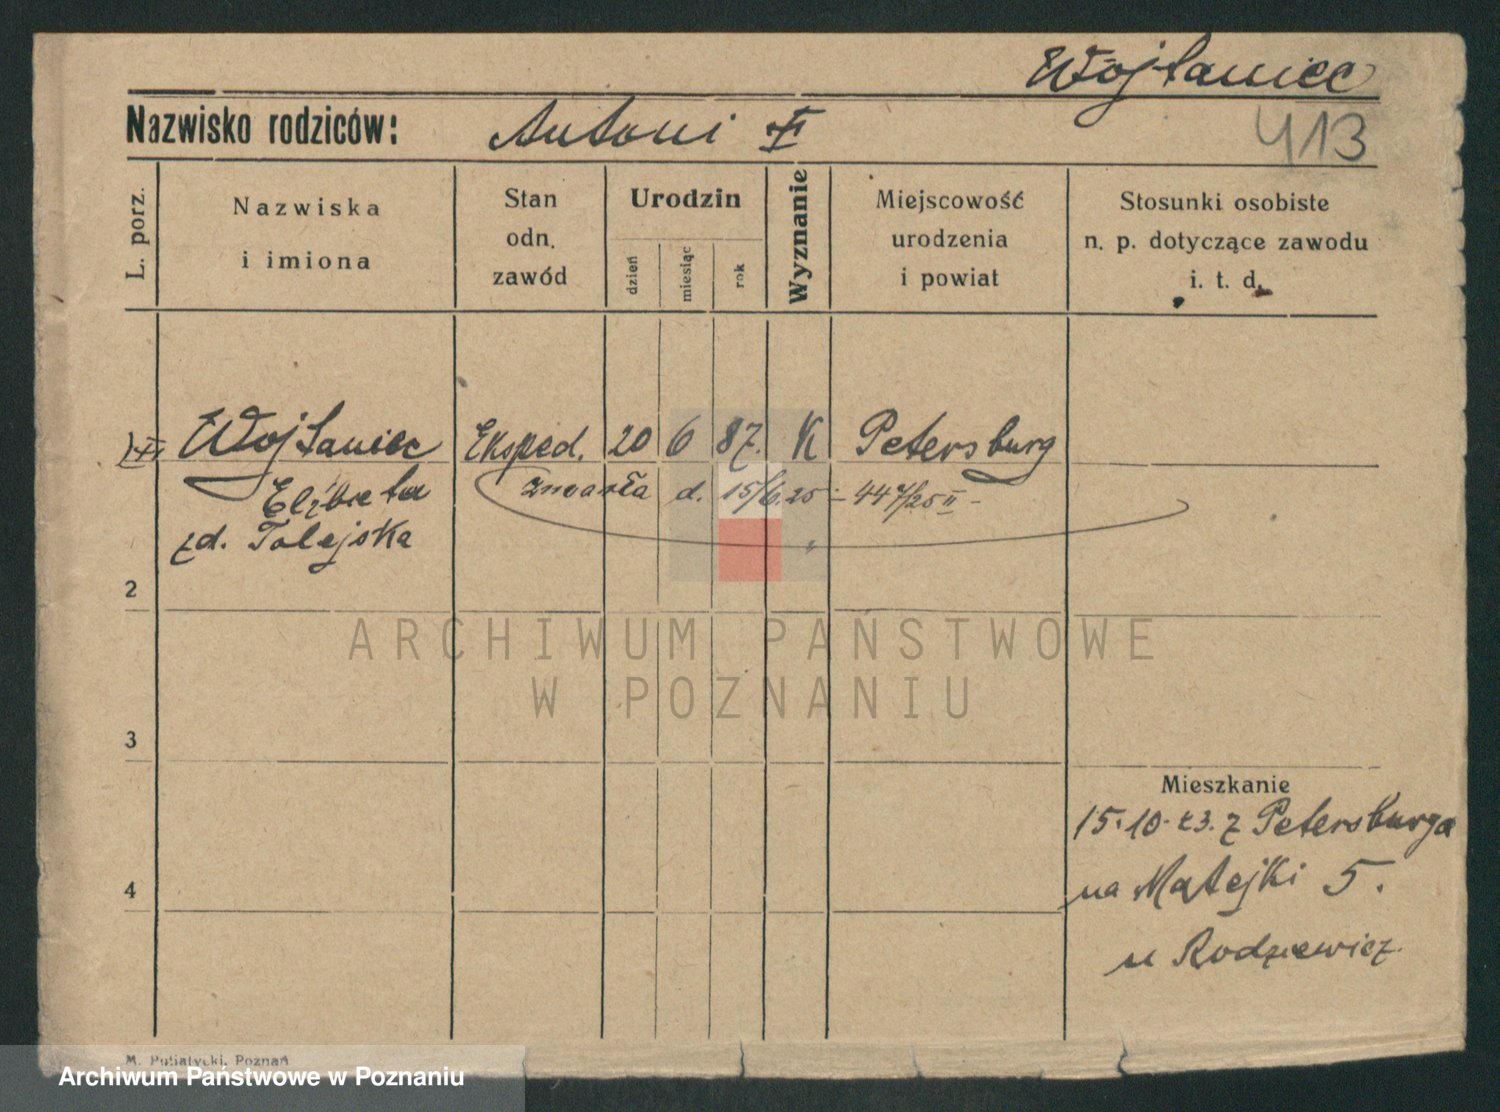 Wojtaniec
Nazwisko rodziców: Antoni
413
L. porz.
Nazwiska
i imiona
Stan
odn.
zawód
Urodzin
dzień
miesiąc
rok
Wyznanie
Miejscowość
urodzenia
i powiat
Stosunki osobiste
n. p. dotyczące zawodu
i. t. d.
1 Wojtaniec Eksped. 20 6 87. K Petersburg
Elżbieta zmarła d. 15/6.25 - 447/25 II -
zd. Tolejska
2
ARCHIWUM PAŃSTWOWE
W POZNANIU
3
Mieszkanie
15.10.23. z Petersburga
4
na Matejki 5.
u Rodziewicz.
M. Putiatycki, Poznań
Archiwum Państwowe w Poznaniu